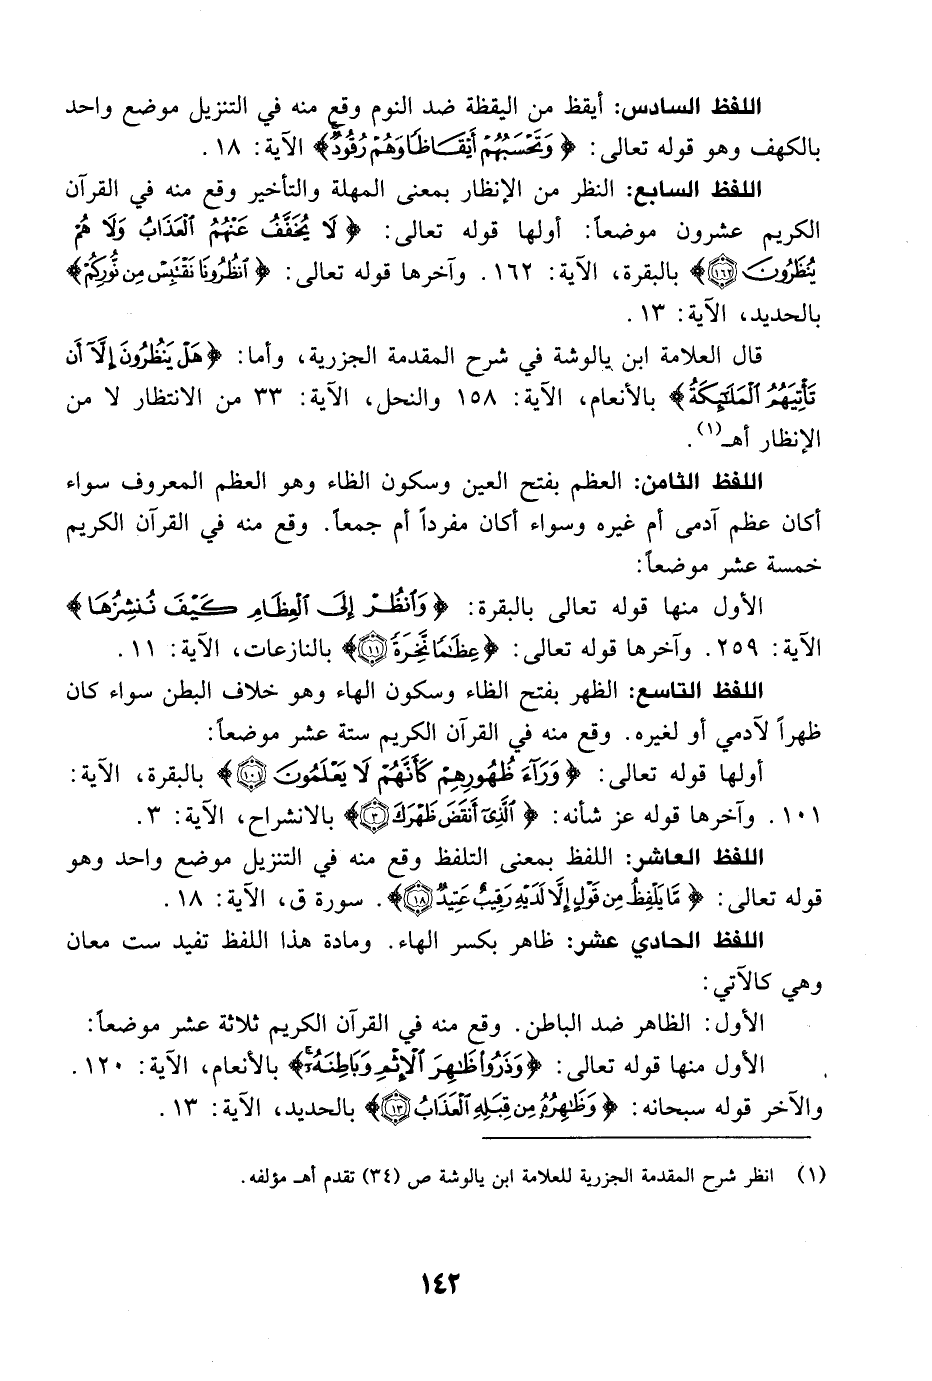 اللفظ السادس: أيقظ من اليقظة ضد النوم وقع منه في التنزيل موضع واحد
بالكهف وهو قوله تعالى: ﴿وَتَحْسَبُهُمْ أَيْقَاظًا وَهُمْ رُقُودٌ﴾ الآية: ١٨.
اللفظ السابع: النظر من الإنظار بمعنى المهلة والتأخير وقع منه في القرآن
الكريم عشرون موضعاً: أولها قوله تعالى: ﴿لَا يُخَفَّفُ عَنْهُمُ ٱلْعَذَابُ وَلَا هُمْ
يُنظَرُونَ ١٦٢﴾ بالبقرة، الآية: ١٦٢. وآخرها قوله تعالى: ﴿ٱنظُرُونَا نَقْتَبِسْ مِن نُّورِكُمْ﴾
بالحديد، الآية: ١٣.
قال العلامة ابن يالوشة في شرح المقدمة الجزرية، وأما: ﴿هَلْ يَنظُرُونَ إِلَّآ أَن
تَأْتِيَهُمُ ٱلْمَلَٰٓئِكَةُ﴾ بالأنعام، الآية: ١٥٨ والنحل، الآية: ٣٣ من الانتظار لا من
الإنظار أهـ(١).
اللفظ الثامن: العظم بفتح العين وسكون الظاء وهو العظم المعروف سواء
أكان عظم آدمى أم غيره وسواء أكان مفرداً أم جمعاً. وقع منه في القرآن الكريم
خمسة عشر موضعاً:
الأول منها قوله تعالى بالبقرة: ﴿وَٱنظُرْ إِلَى ٱلْعِظَامِ كَيْفَ نُنشِزُهَا﴾
الآية: ٢٥٩. وآخرها قوله تعالى: ﴿عِظَٰمًا نَّخِرَةً ١١﴾ بالنازعات، الآية: ١١.
اللفظ التاسع: الظهر بفتح الظاء وسكون الهاء وهو خلاف البطن سواء كان
ظهراً لآدمي أو لغيره. وقع منه في القرآن الكريم ستة عشر موضعاً:
أولها قوله تعالى: ﴿وَرَآءَ ظُهُورِهِمْ كَأَنَّهُمْ لَا يَعْلَمُونَ ١٠١﴾ بالبقرة، الآية:
١٠١. وآخرها قوله عز شأنه: ﴿ٱلَّذِىٓ أَنقَضَ ظَهْرَكَ ٣﴾ بالانشراح، الآية: ٣.
اللفظ العاشر: اللفظ بمعنى التلفظ وقع منه في التنزيل موضع واحد وهو
قوله تعالى: ﴿مَّا يَلْفِظُ مِن قَوْلٍ إِلَّا لَدَيْهِ رَقِيبٌ عَتِيدٌ ١٨﴾. سورة ق، الآية: ١٨.
اللفظ الحادي عشر: ظاهر بكسر الهاء. ومادة هذا اللفظ تفيد ست معان
وهي كالآتي:
الأول: الظاهر ضد الباطن. وقع منه في القرآن الكريم ثلاثة عشر موضعاً:
الأول منها قوله تعالى: ﴿وَذَرُوا۟ ظَٰهِرَ ٱلْإِثْمِ وَبَاطِنَهُۥٓ﴾ بالأنعام، الآية: ١٢٠.
والآخر قوله سبحانه: ﴿وَظَٰهِرُهُۥ مِن قِبَلِهِ ٱلْعَذَابُ ١٣﴾ بالحديد، الآية: ١٣.
(١) انظر شرح المقدمة الجزرية للعلامة ابن يالوشة ص (٣٤) تقدم أهـ مؤلفه.
١٤٢